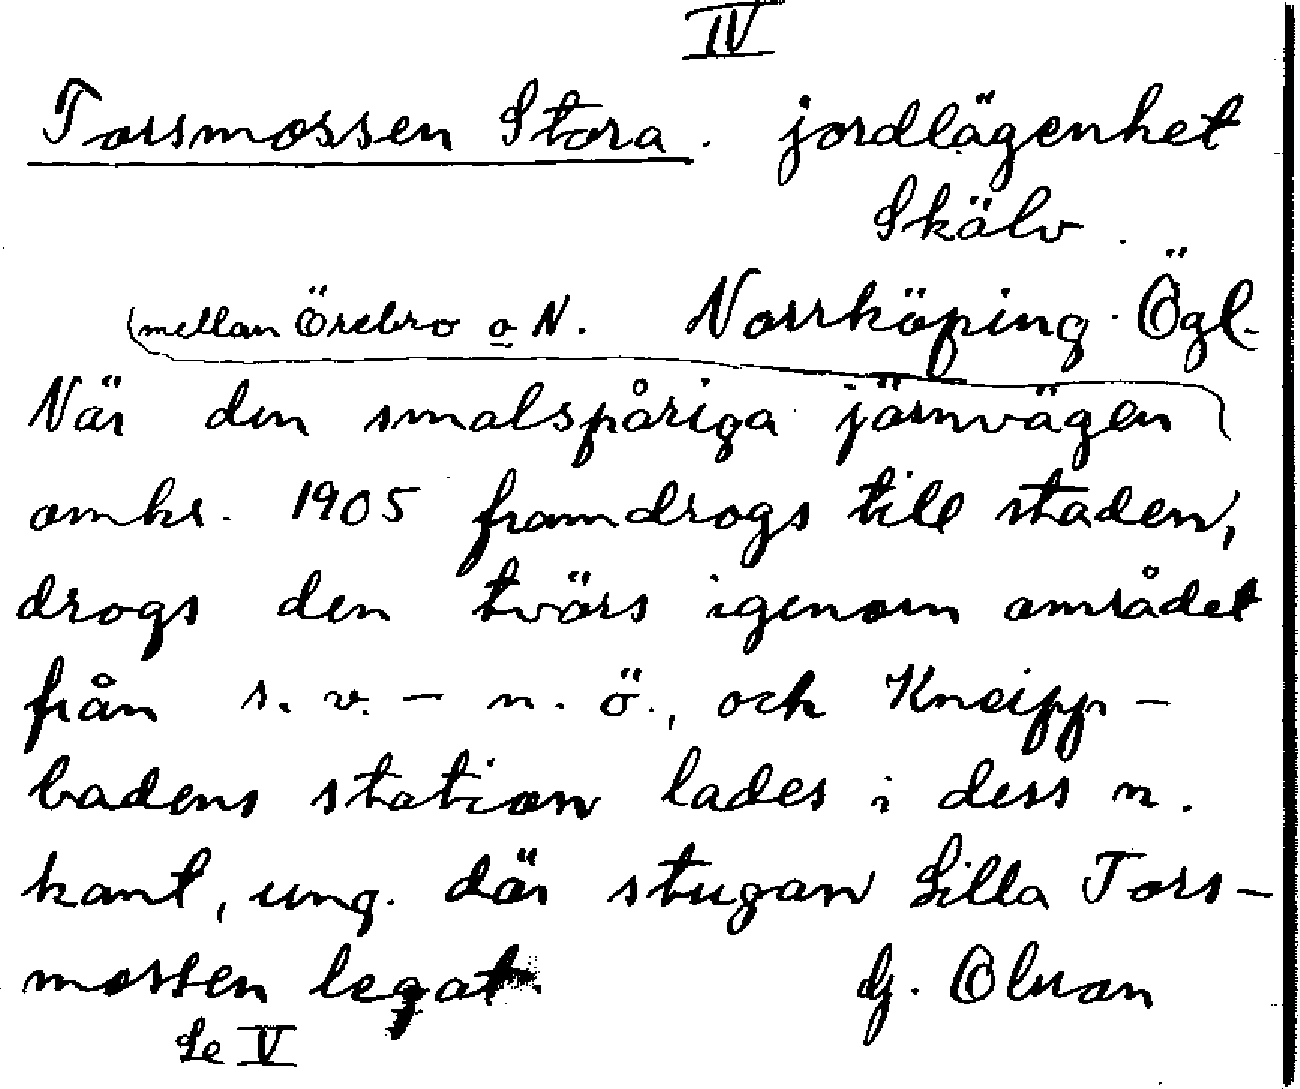 IV
Torsmossen Stora. jordlägenhet
Skälv.
(mellan Örebro o N. Norrköping. Ögl.
När den smalspåriga järnvägen
omkr. 1905 framdrogs till staden,
drogs den tvärs igenom området
från s. v. – n. ö., och Kneipp-
badens station lades i dess n.
kant, ung. där stugan Lilla Tors-
mossen legat.
G. Olson
Se V